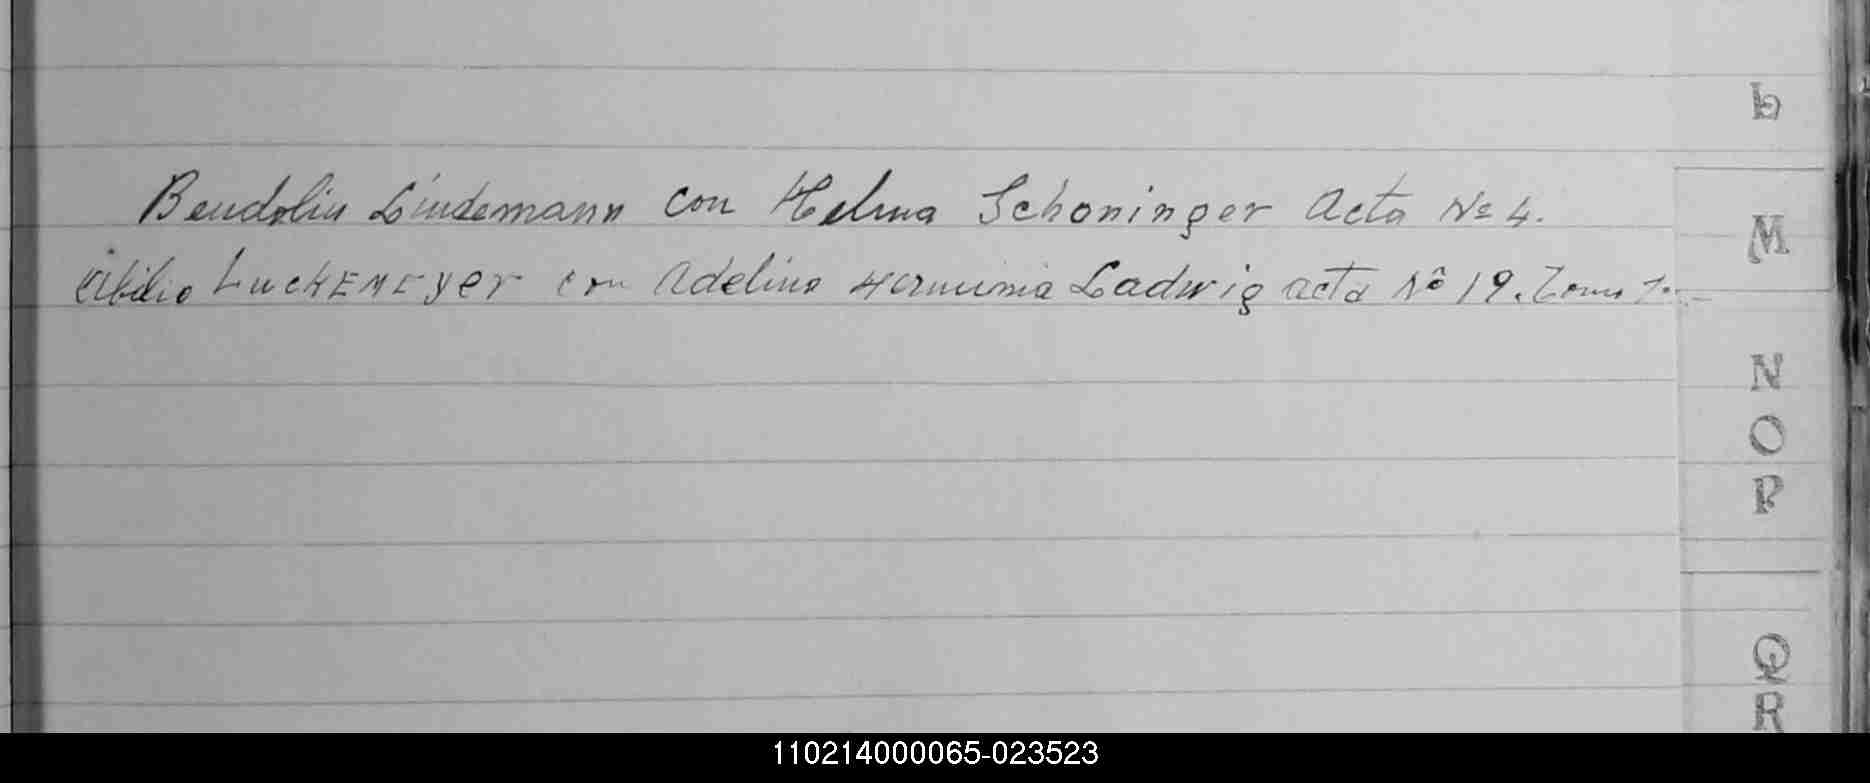 Bendolin Lindemann con Helma Schoninger Acta Nº 4.
Abilio Luckemeyer con Adelina Herminia Ladwig acta Nº 19. Tomo 1.
L
M
N
O
P
Q
R
110214000065-023523